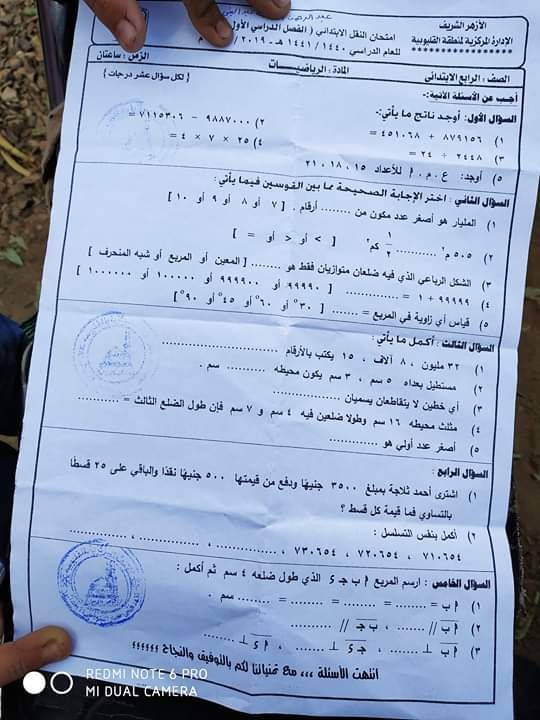 الأزهر الشريف
الإدارة المركزية لمنطقة القليوبية
امتحان النقل الابتدائي ( الفصل الدراسي الأول )
للعام الدراسي ١٤٤٠ / ١٤٤١ هـ - ٢٠١٩ /
الصف : الرابع الابتدائى المادة : الرياضيـــات الزمن : ساعتان
أجب عن الأسئلة الآتية :- { لكل سؤال عشر درجات }
السؤال الأول : أوجد ناتج ما يأتي :-
١) ٨٧٩١٥٦ + ٤٥١٠٦٨ = ٢) ٩٨٨٧٠٠٠ - ٧١١٥٣٠٦ =
٣) ٢٤٤٨ ÷ ٢٤ = ٤) ٢٥ × ٧ × ٤ =
٥) أوجد : ع . م . أ للأعداد ١٥ ، ١٨ ، ٢١
السؤال الثاني : اختر الإجابة الصحيحة مما بين القوسين فيما يأتي :
١) المليار هو أصغر عدد مكون من ........ أرقام . [ ٧ أو ٨ أو ٩ أو ١٠ ]
٢) ٥٠٥ م٢ ........... ١/٢ كم٢ [ > أو < أو = ]
٣) الشكل الرباعي الذي فيه ضلعان متوازيان فقط هو ........ [ المعين أو المربع أو شبه المنحرف ]
٤) ٩٩٩٩٩ + ١ = .............. [ ٩٩٩٩٠ أو ٩٩٩٩٠٠ أو ١٠٠٠٠٠ أو ١٠٠٠٠٠٠ ]
٥) قياس أي زاوية في المربع = ....... [ ٣٠° أو ٦٠° أو ٤٥° أو ٩٠° ]
السؤال الثالث : أكمل ما يأتي :
١) ٣٢ مليون ، ٨ آلاف ، ١٥ يكتب بالأرقام ..............................
٢) مستطيل بعداه ٥ سم ، ٣ سم يكون محيطه .......... سم .
٣) أي خطين لا يتقاطعان يسميان ....................
٤) مثلث محيطه ١٦ سم وطولا ضلعين فيه ٤ سم و ٧ سم فإن طول الضلع الثالث = ..........
٥) أصغر عدد أولي هو ............
السؤال الرابع :
١) اشترى أحمد ثلاجة بمبلغ ٣٥٠٠ جنيهًا ودفع من قيمتها ٥٠٠ جنيهًا نقدًا والباقي على ٢٥ قسطًا
بالتساوي فما قيمة كل قسط ؟
٢) أكمل بنفس التسلسل :
٧١٠٦٥٤ ، ٧٢٠٦٥٤ ، ٧٣٠٦٥٤ ، .............. ، .............. ، ..............
السؤال الخامس : ارسم المربع أ ب جـ ء الذي طول ضلعه ٤ سم ثم أكمل :
١) أ ب = ........ = ........ = ........ = ........ سم .
٢) أ ب // ........ ، ب جـ // ........
٣) أ ب ⊥ ........ ، جـ ء ⊥ ........ ، أ ء ⊥ ........
انتهت الأسئلة ،،، مع تمنياتنا لكم بالتوفيق والنجاح ،،،،،،
REDMI NOTE 6 PRO
MI DUAL CAMERA